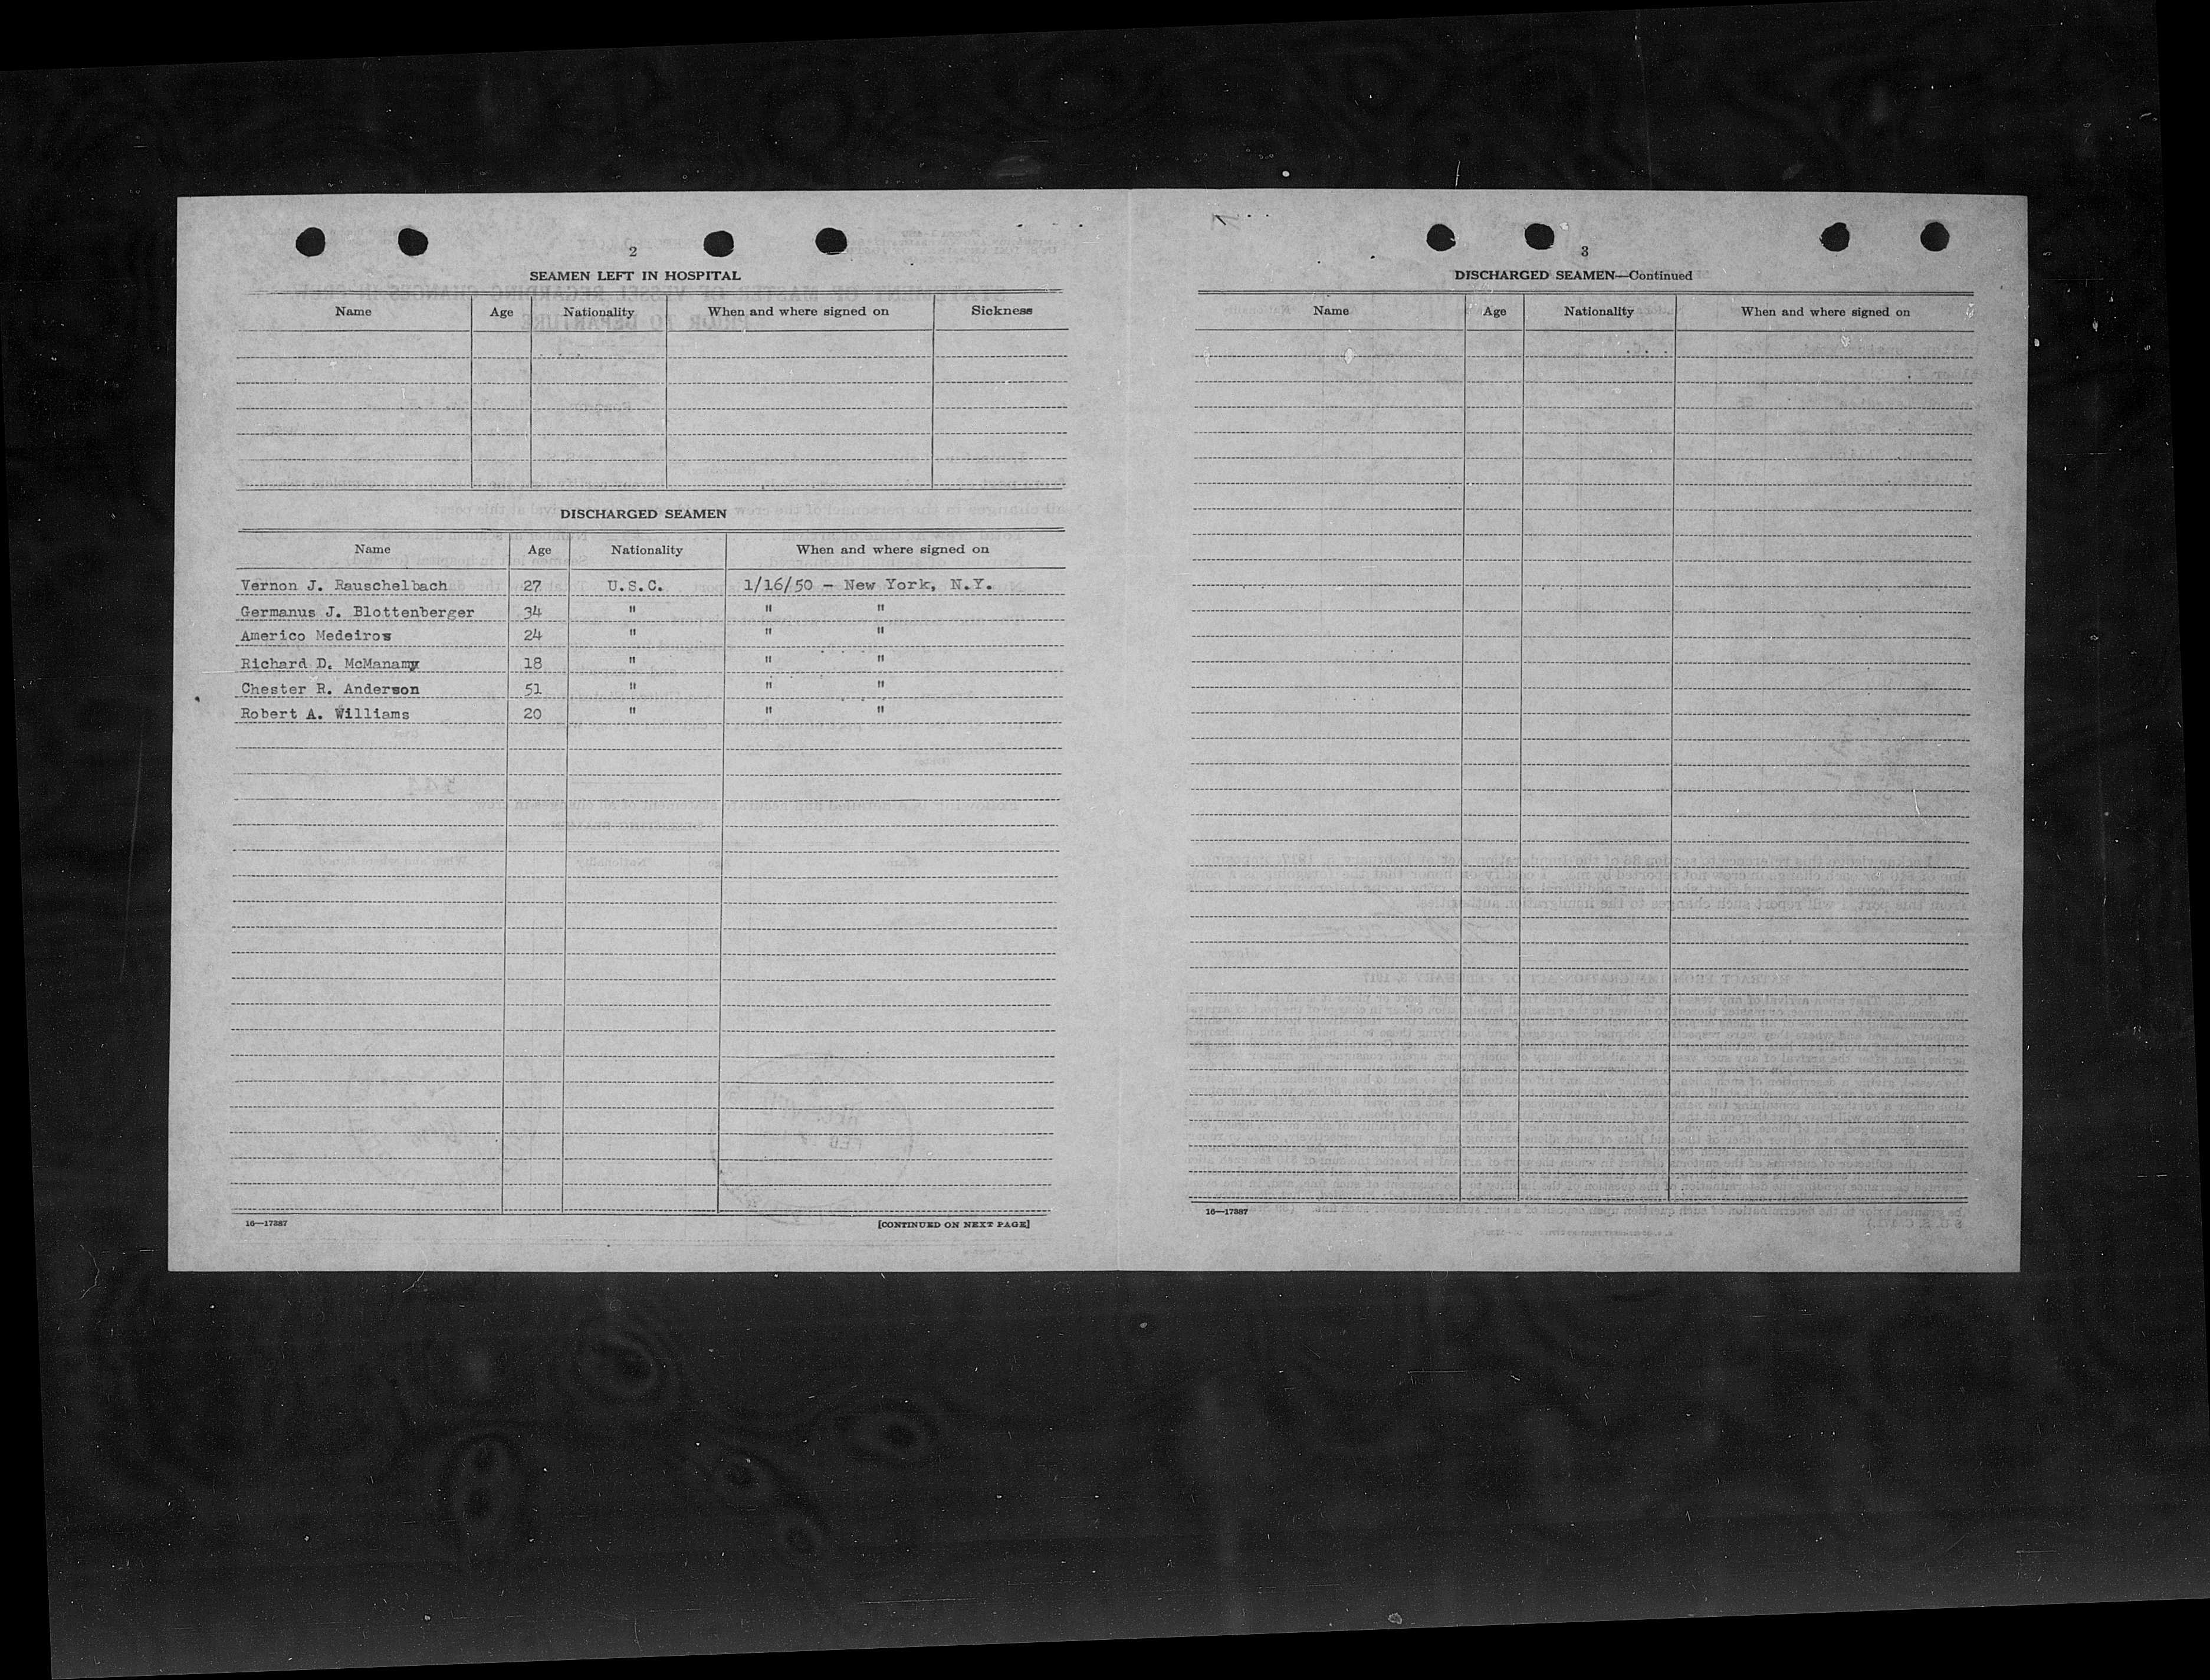 2
SEAMEN LEFT IN HOSPITAL
Name Age Nationality When and where signed on Sickness
DISCHARGED SEAMEN
Name Age Nationality When and where signed on
Vernon J. Rauschelbach 27 U.S.C. 1/16/50 - New York, N.Y.
Germanus J. Blottenberger 34 " " "
Americo Medeiros 24 " " "
Richard D. McManamy 18 " " "
Chester R. Anderson 51 " " "
Robert A. Williams 20 " " "
16—17387 [CONTINUED ON NEXT PAGE]
3
DISCHARGED SEAMEN—Continued
Name Age Nationality When and where signed on
16—17387